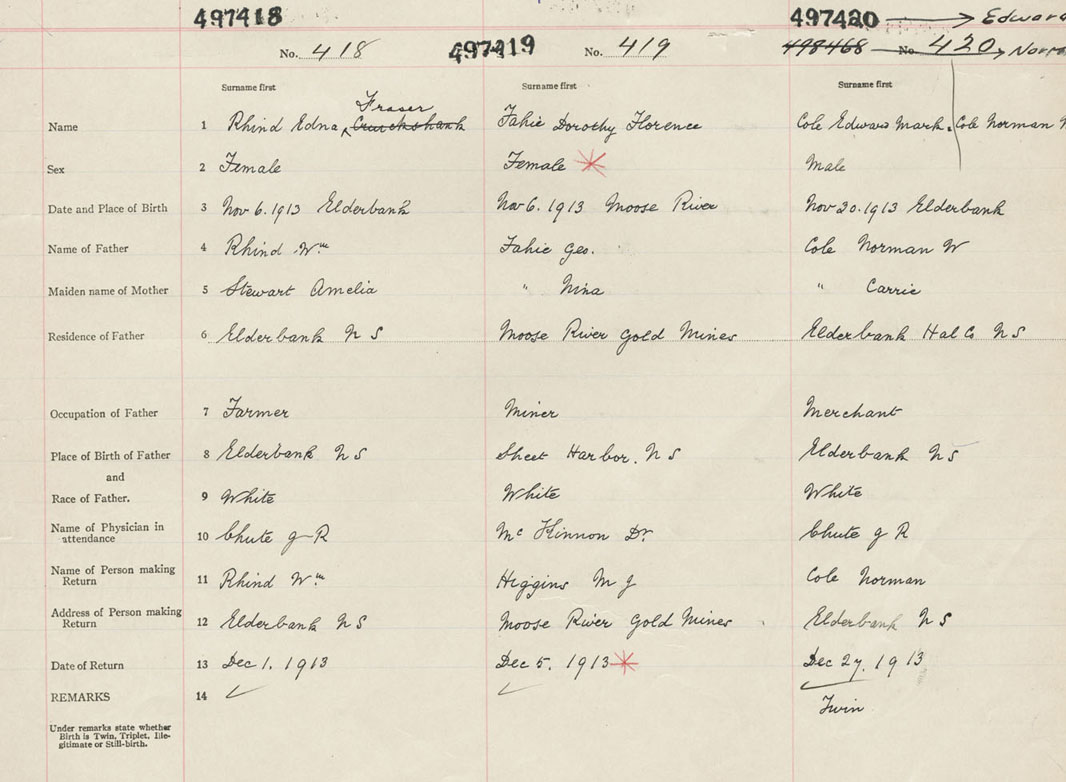 497418 497420 → Edward
No. 418 497419 No. 419 498468 No. 420 → Norm
Surname first Surname first Surname first
Fraser
Name 1 Rhind Edna Cruickshank Fahie Dorothy Florence Cole Edward Mark. Cole Norman
Sex 2 Female Female Male
Date and Place of Birth 3 Nov 6. 1913 Elderbank Nov 6. 1913 Moose River Nov 20. 1913 Elderbank
Name of Father 4 Rhind Wm Fahie Geo. Cole Norman W
Maiden name of Mother 5 Stewart Amelia " Nina " Carrie
Residence of Father 6 Elderbank N S Moose River Gold Mines Elderbank Hal Co N S
Occupation of Father 7 Farmer Miner Merchant
Place of Birth of Father 8 Elderbank N S Sheet Harbor. N S Elderbank N S
and
Race of Father. 9 White White White
Name of Physician in
attendance 10 Chute G R Mc Kinnon Dr. Chute G R
Name of Person making
Return 11 Rhind Wm Higgins M J Cole Norman
Address of Person making
Return 12 Elderbank N S Moose River Gold Mines Elderbank N S
Date of Return 13 Dec 1. 1913 Dec 5. 1913 Dec 27. 1913
REMARKS 14 ✓ ✓ ✓
Twin
Under remarks state whether
Birth is Twin, Triplet, Ille-
gitimate or Still-birth.